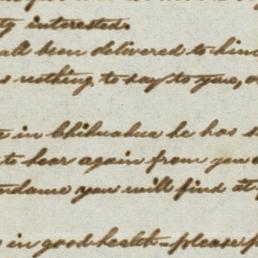 ty interested.
all been delivered to him
s nothing to say to you,
in Chihuahua he has
to hear again from you
you will find at
in good health - please